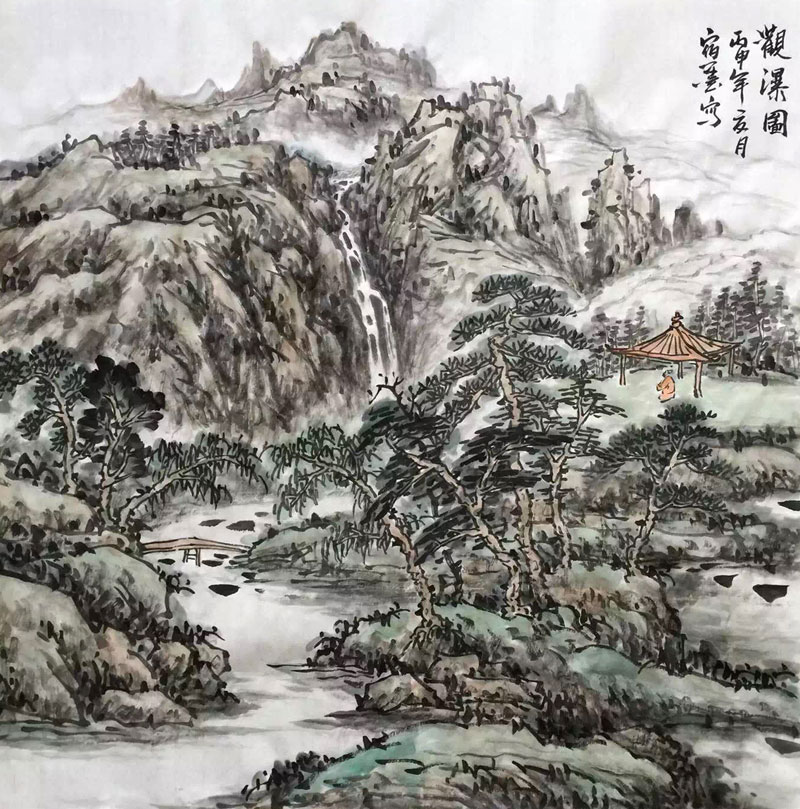 觀瀑圖
丙申年亥月
宿墨寫